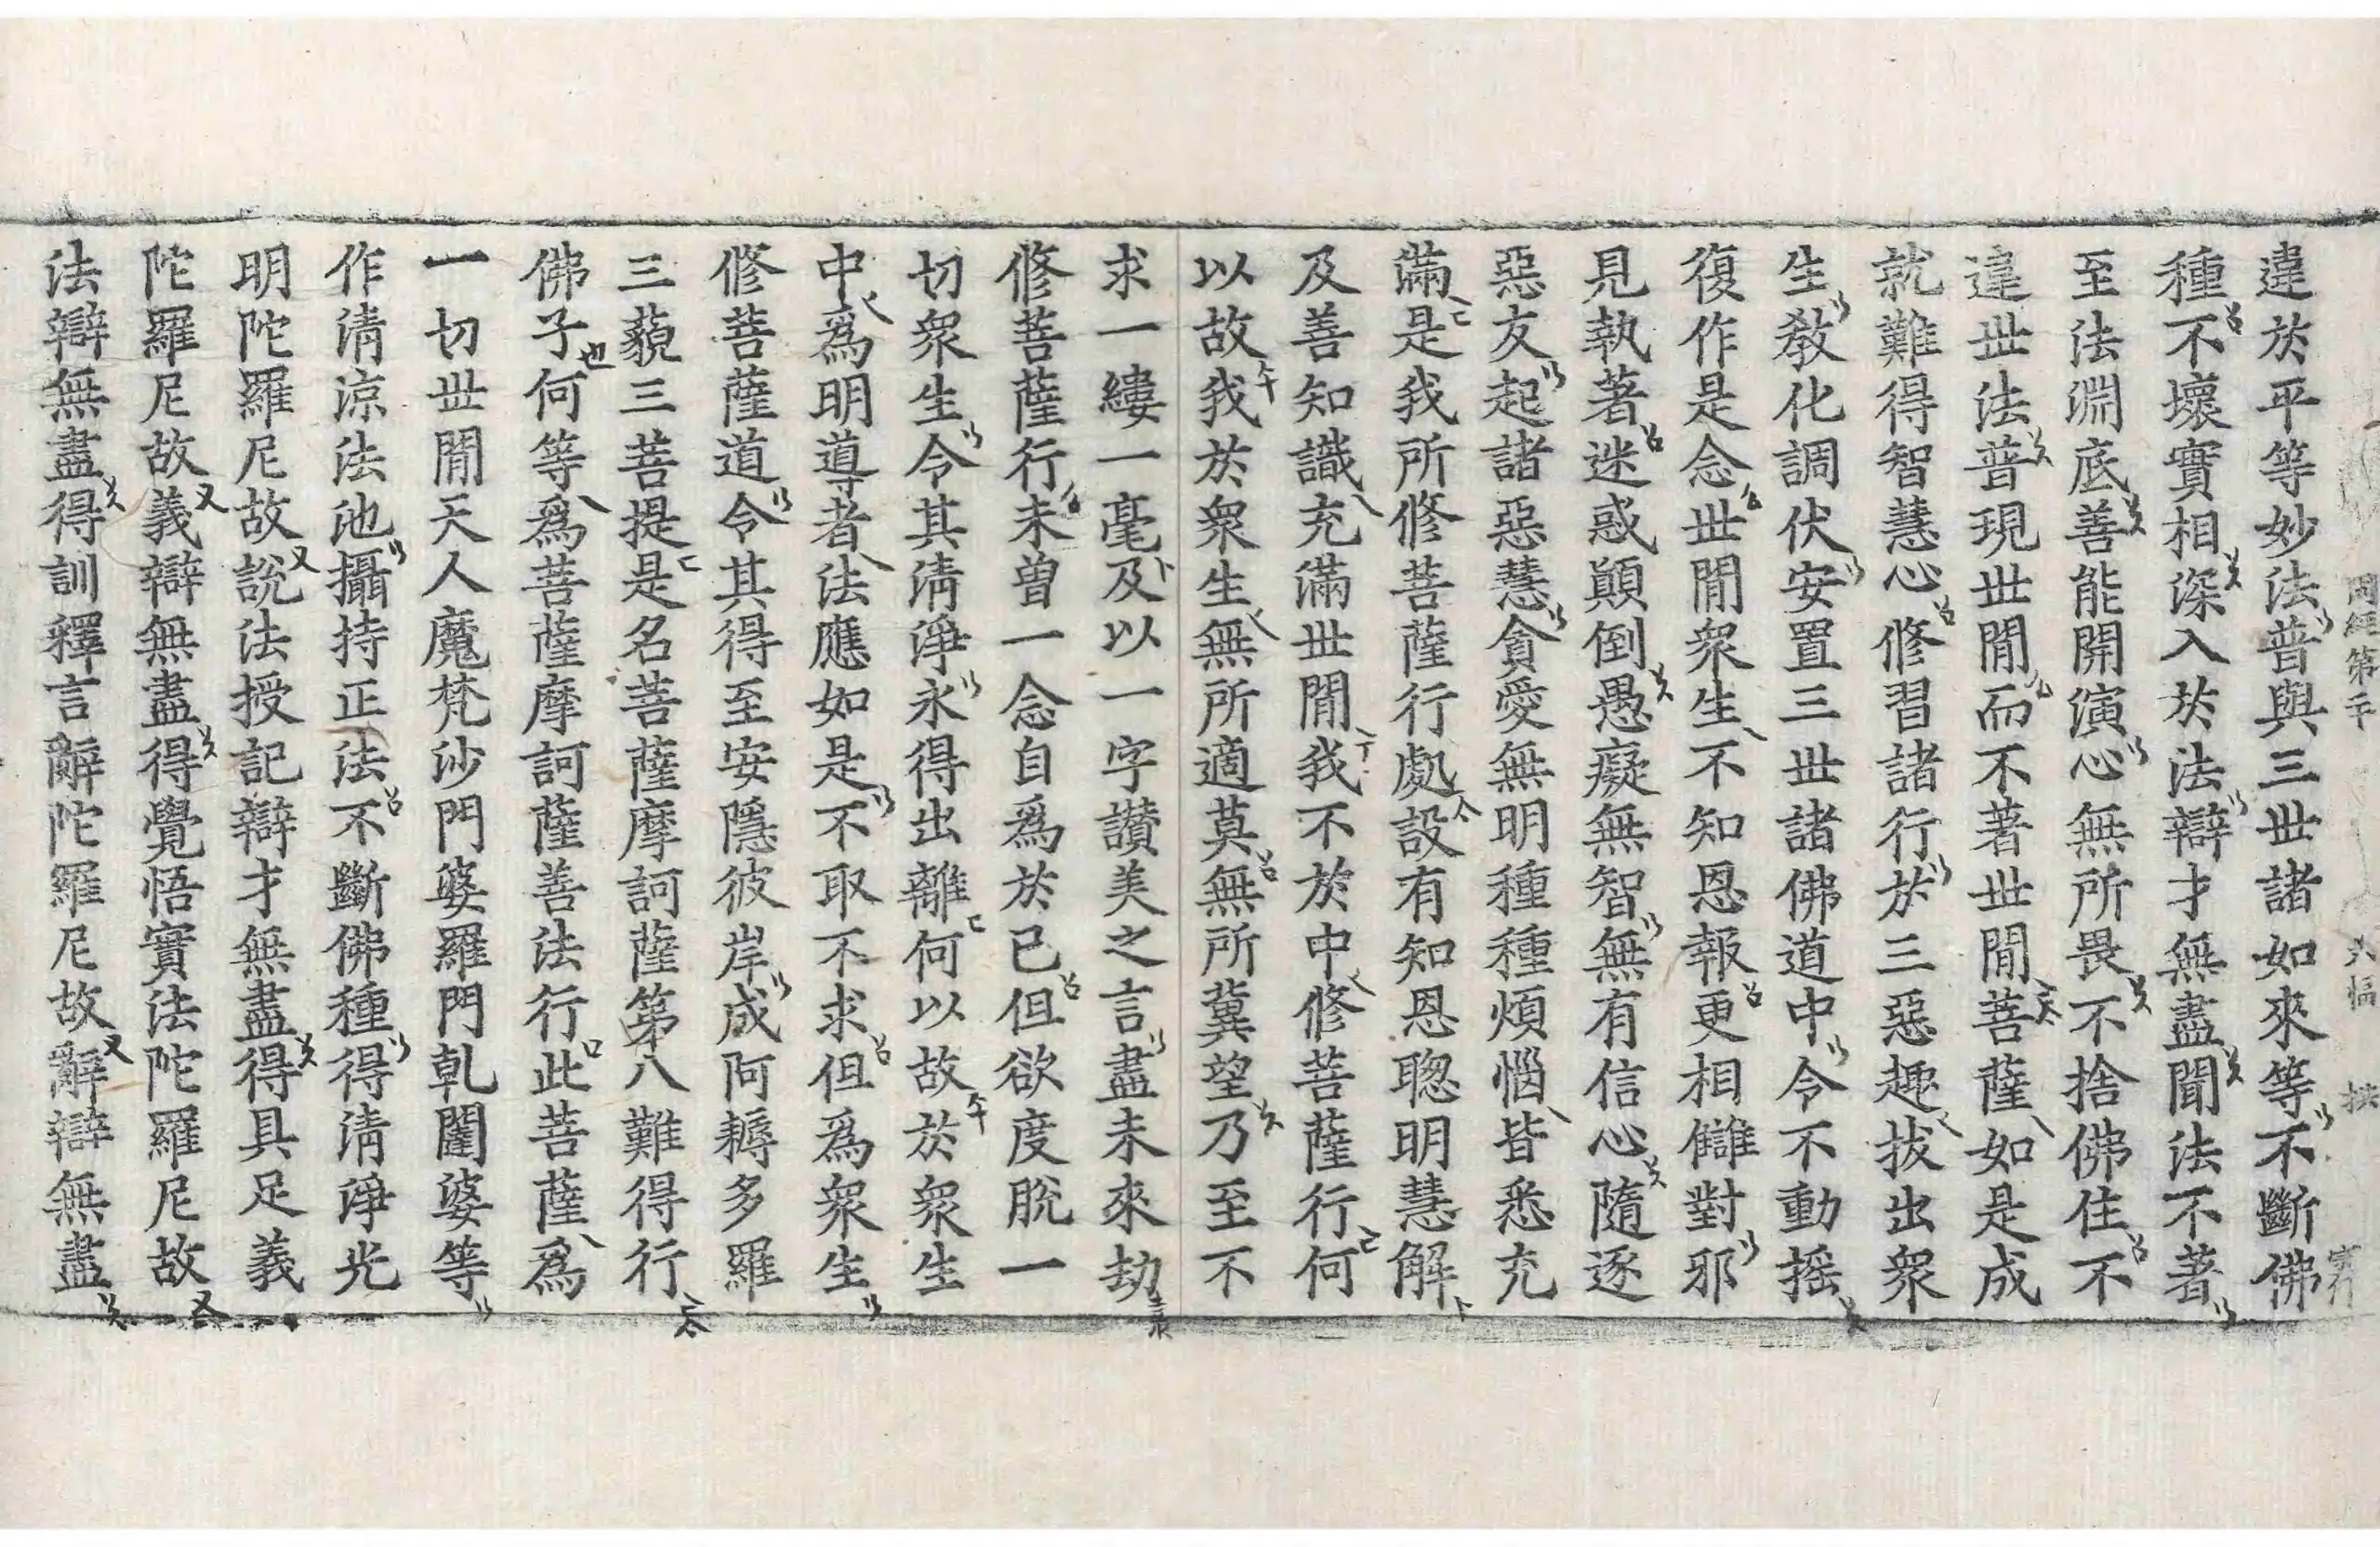 違於平等妙法普與三世諸如來等不斷佛
種不壞實相深入於法辯才無盡聞法不著
至法淵底善能開演心無所畏不捨佛住不
違世法普現世間而不著世間菩薩如是成
就難得智慧心修習諸行於三惡趣拔出衆
生教化調伏安置三世諸佛道中令不動搖
復作是念世間衆生不知恩報更相讎對邪
見執著迷惑顚倒愚癡無智無有信心隨逐
惡友起諸惡慧貪愛無明種種煩惱皆悉充
滿是我所修菩薩行處設有知恩聰明慧解
及善知識充滿世間我不於中修菩薩行何
以故我於衆生無所適莫無所冀望乃至不
求一縷一毫及以一字讃美之言盡未來劫
修菩薩行未曽一念自爲於已但欲度脫一
切衆生令其淸淨永得出離何以故於衆生
中爲明導者法應如是不取不求但爲衆生
修菩薩道令其得至安隱彼岸成阿耨多羅
三藐三菩提是名菩薩摩訶薩第八難得行
佛子何等爲菩薩摩訶薩善法行此菩薩爲
一切世間天人魔梵沙門婆羅門乹闥婆等
作淸凉法池攝持正法不斷佛種得淸淨光
明陀羅尼故說法授記辯才無盡得具足義
陀羅尼故義辯無盡得覺悟實法陀羅尼故
法辯無盡得訓釋言辭陀羅尼故辭辯無盡